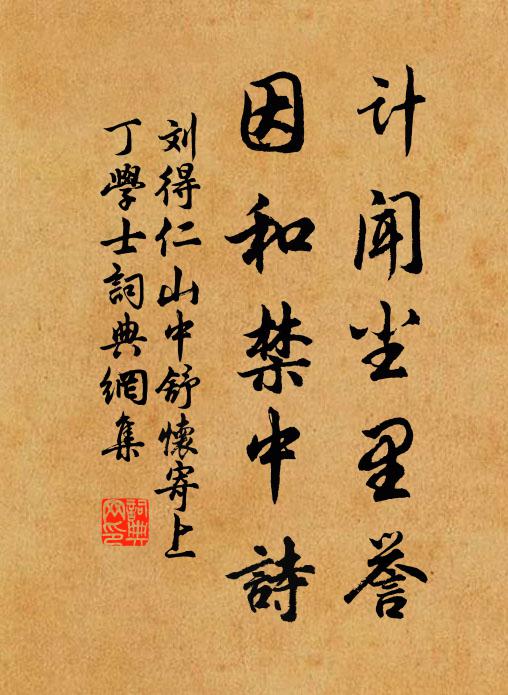 计闻尘里誉
因和禁中詩
刘得仁山中舒懷寄上
丁學士詞典網集
詞典网印